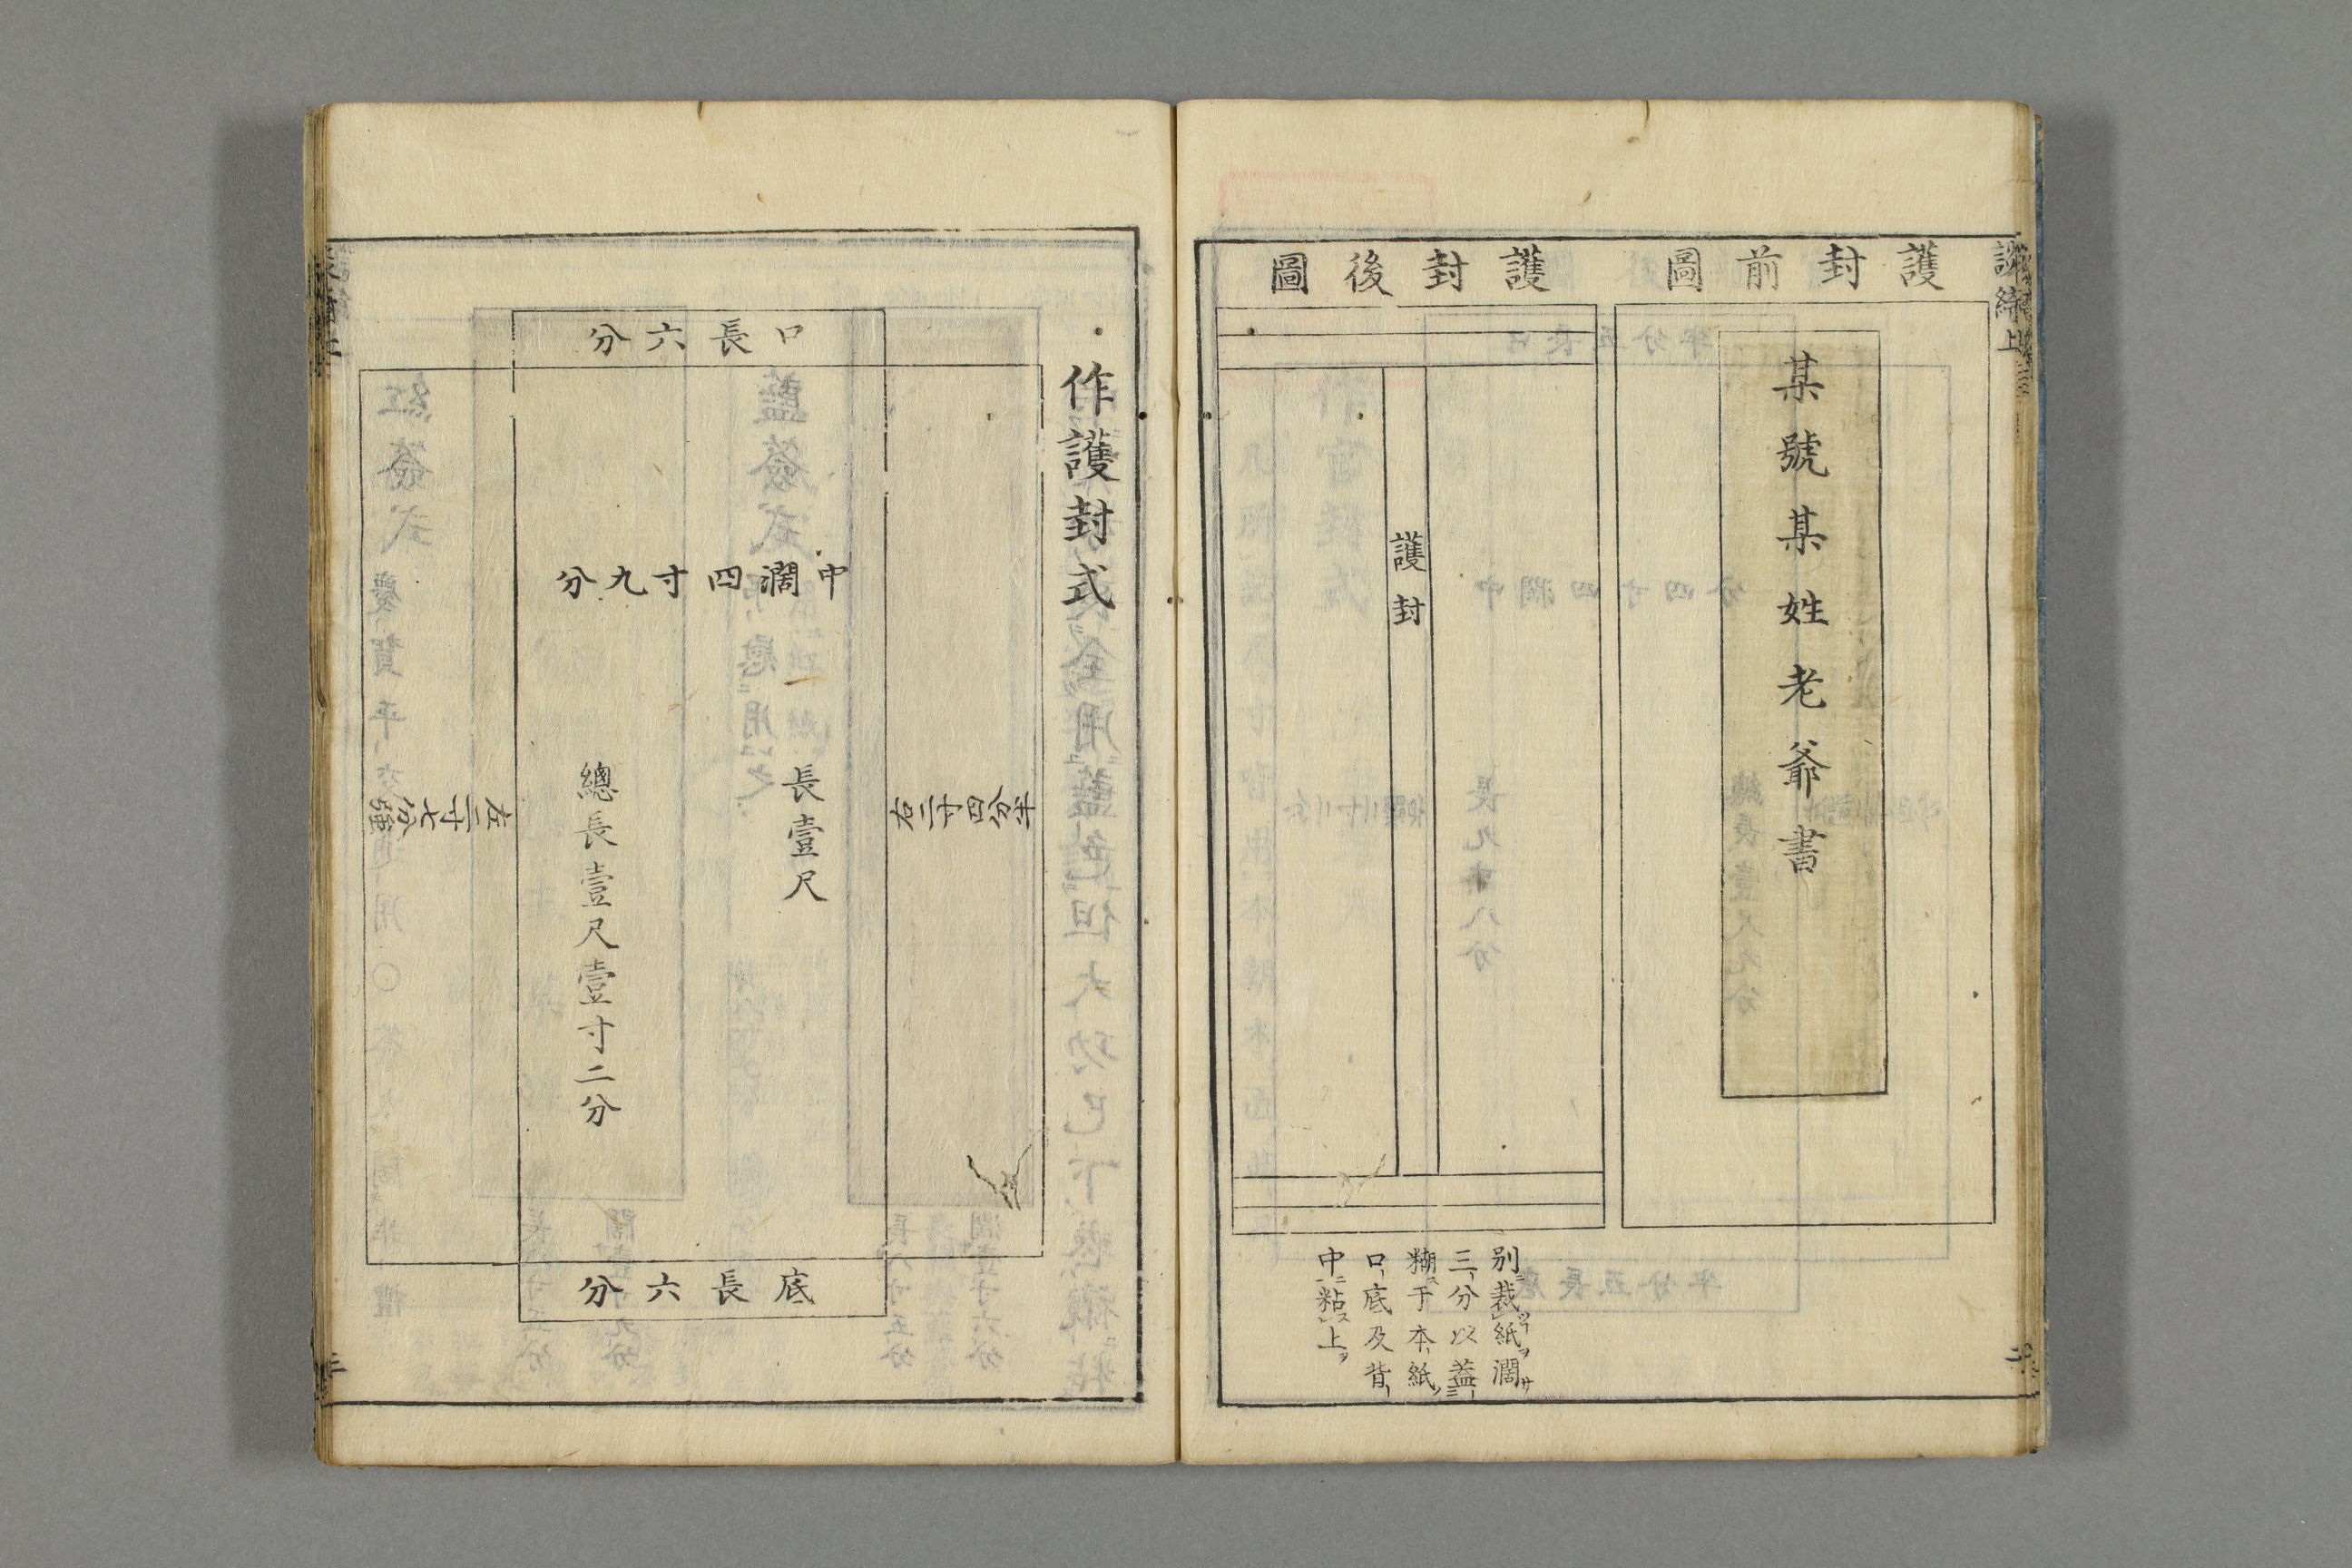 護封前圖
某號某姓老爺書
護封後圖
護封
別裁紙濶
三分以蓋
糊于本紙
口底及背
中粘上
二
作護封式
口長六分
中濶四寸九分
長壹尺
總長壹尺壹寸二分
右二寸四分半
左二寸七分強
底長六分